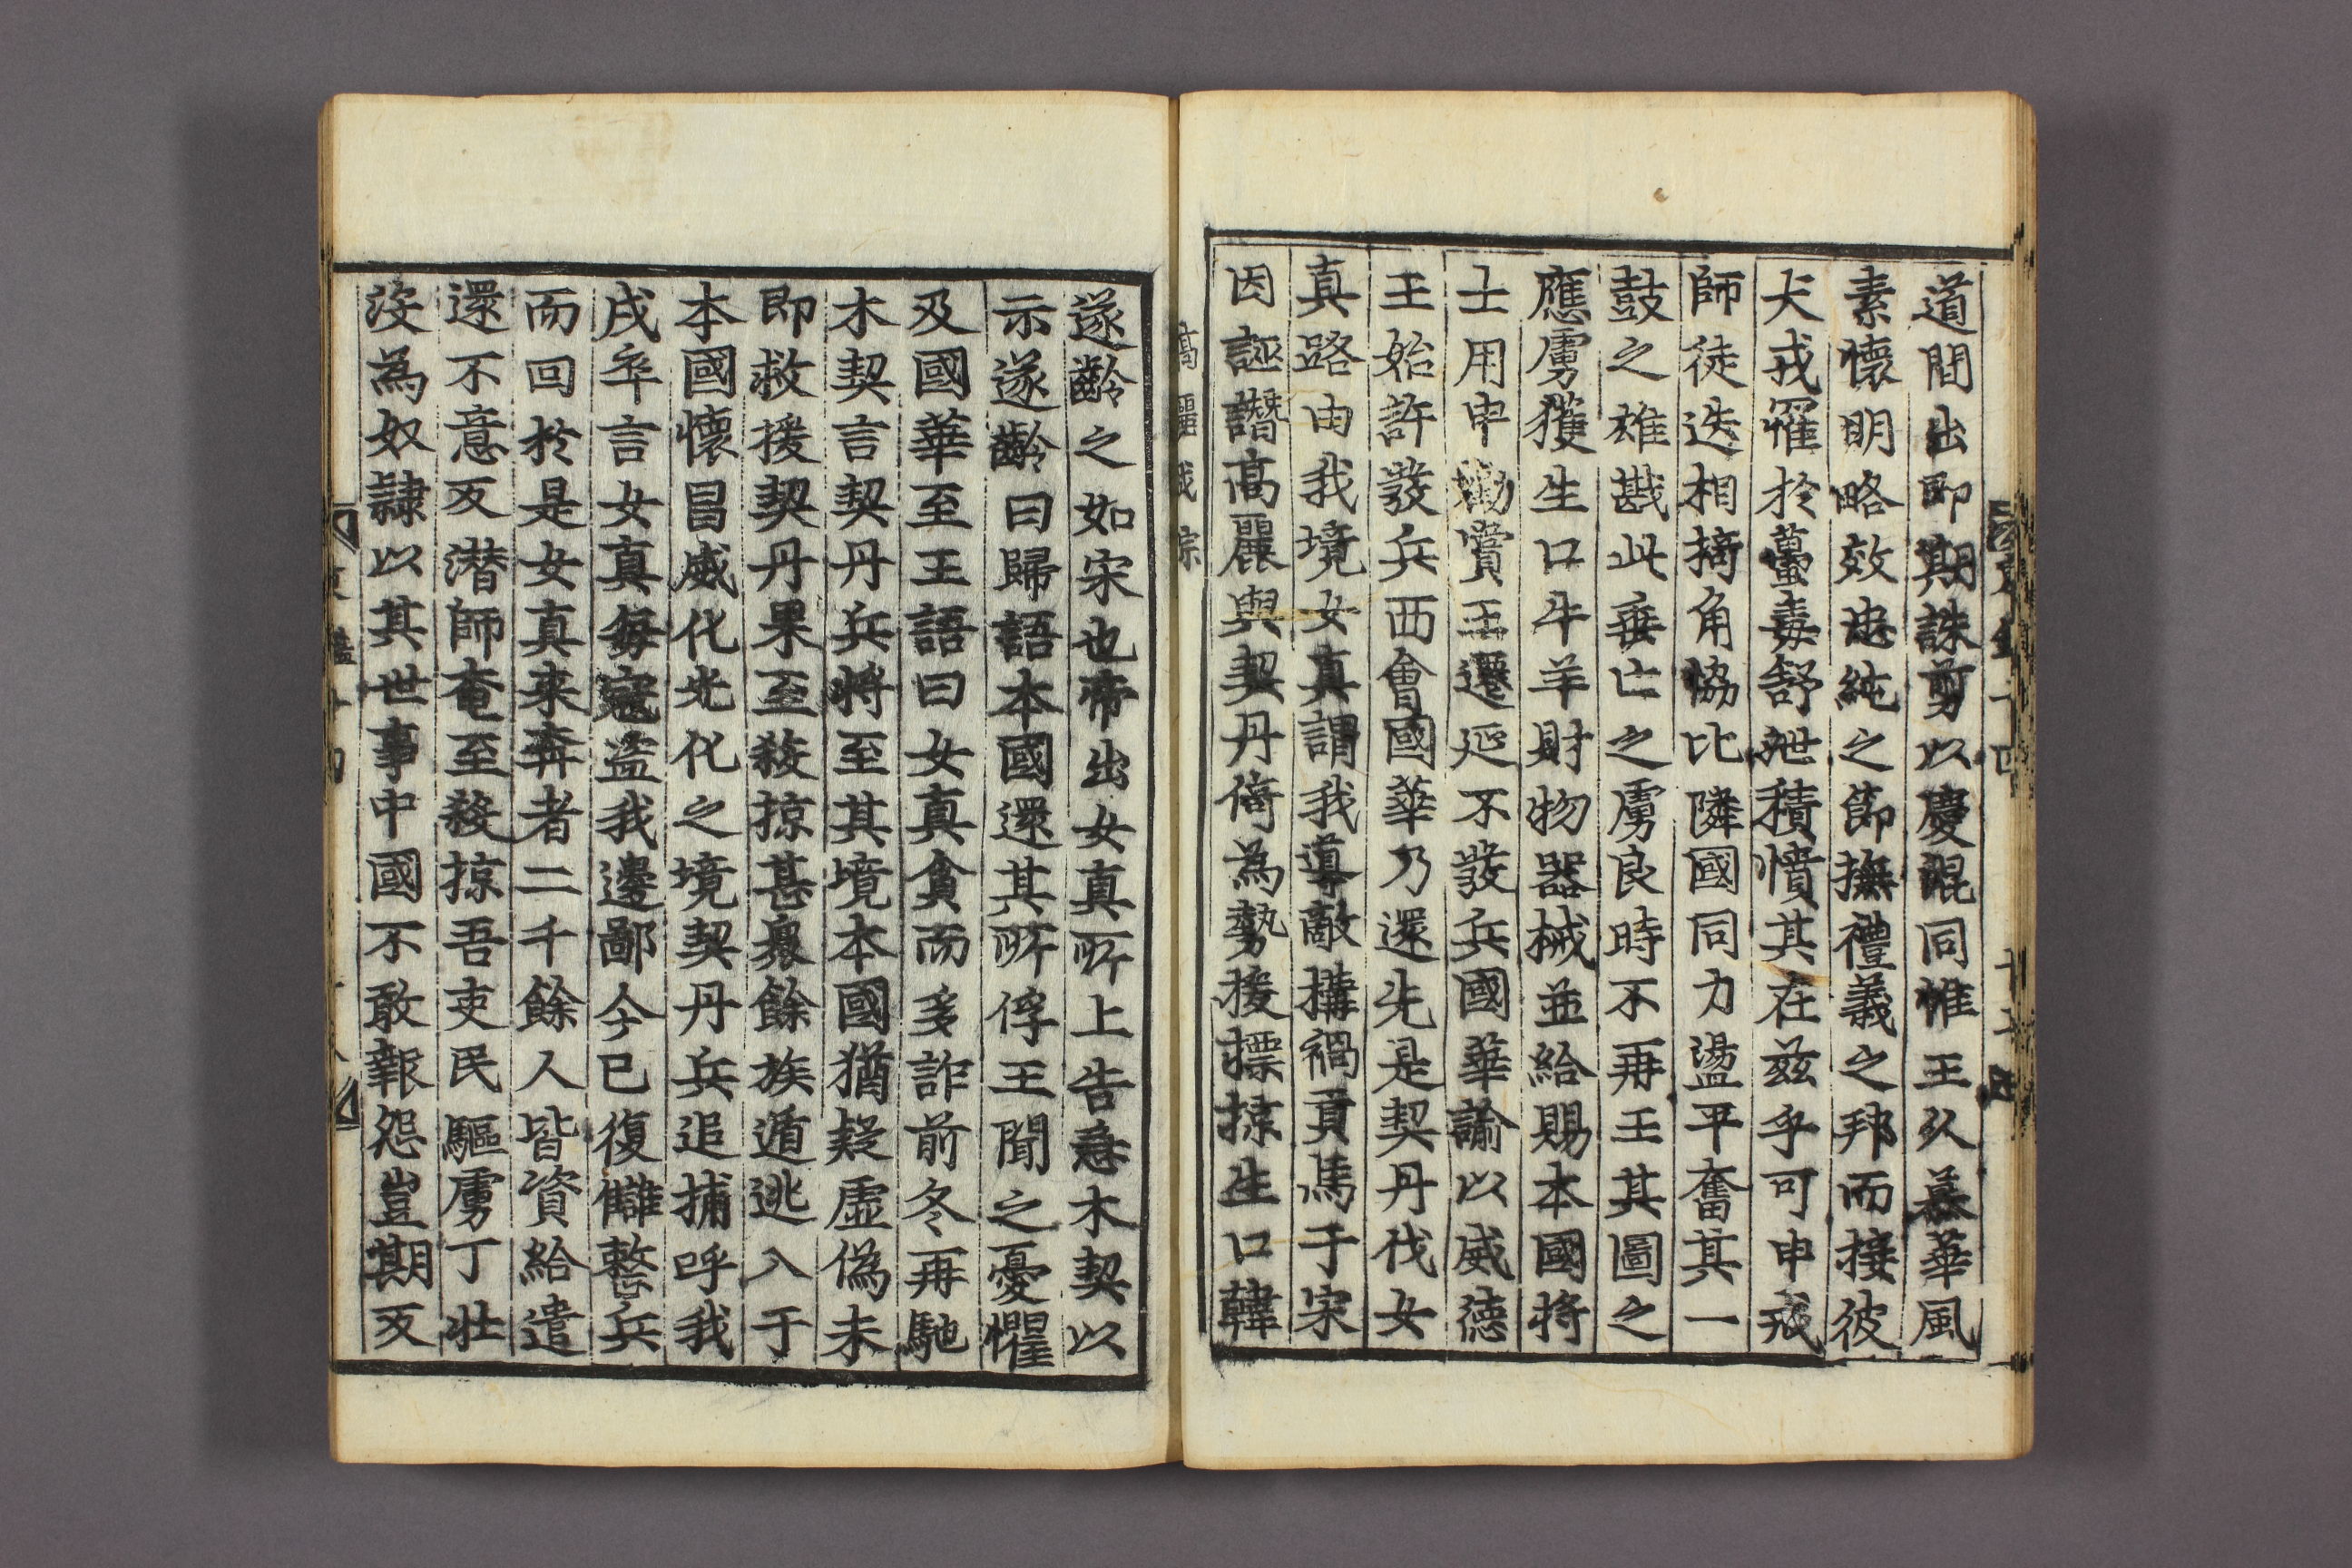 道間出即期誅剪以慶混同惟王久慕華風
素懷明略效忠純之節撫禮義之邦而接彼
犬戎罹於蠆毒舒泄積憤其在玆乎可申戒
師徒迭相掎角協比隣國同力盪平奮其一
鼓之雄戡此垂亡之虜良時不再王其圖之
應虜獲生口牛羊財物器械並給賜本國將
士用申勸賞王遷延不發兵國華諭以威德
王始許發兵西會國華乃還先是契丹伐女
真路由我境女真謂我導敵構禍貢馬于宋
因誣譖高麗與契丹倚為勢援摽掠生口韓
遂齡之如宋也帝出女真所上告急木契以
示遂齡曰歸語本國還其所俘王聞之憂懼
及國華至王語曰女真貪而多詐前冬再馳
木契言契丹兵將至其境本國猶疑虛偽未
即救援契丹果至殺掠甚衆餘族遁逃入于
本國懷昌威化光化之境契丹兵追捕呼我
戍卒言女真每寇盜我邊鄙今已復讎整兵
而回於是女真來奔者二千餘人皆資給遣
還不意反潛師奄至殺掠吾吏民驅虜丁壯
沒為奴隷以其世事中國不敢報怨豈期反